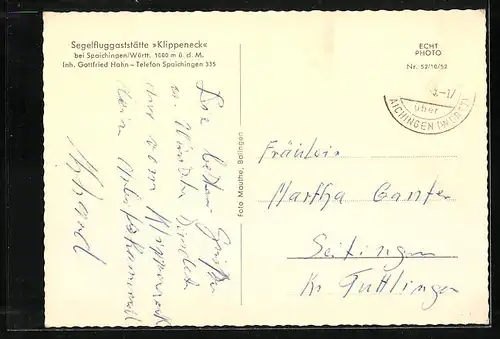 Segelfluggaststätte »Klippeneck«
bei Spaichingen/Württ. 1000 m ü. d. M.
Inh. Gottfried Hahn – Telefon Spaichingen 335
ECHT
PHOTO
Nr. 52/10/52
über
AICHINGEN (WÜRTT)
Foto Mauthe, Balingen
Die besten Grüße
u. Wünsche sendet
nur vom Klippeneck
Dein Arbeitskamerad
Fräulein
Martha Ganter
Seitingen
Kr. Tuttlingen